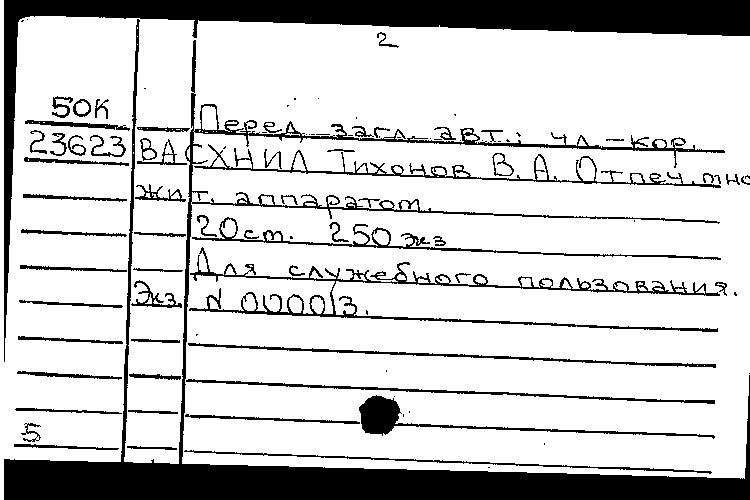 2
50К
Перед загл. авт.: чл.-кор.
23623 ВАСХНИЛ Тихонов В. А. Отпеч. мно
жит. аппаратом.
20 см. 250 экз
Для служебного пользования.
Экз. N 000013.
5